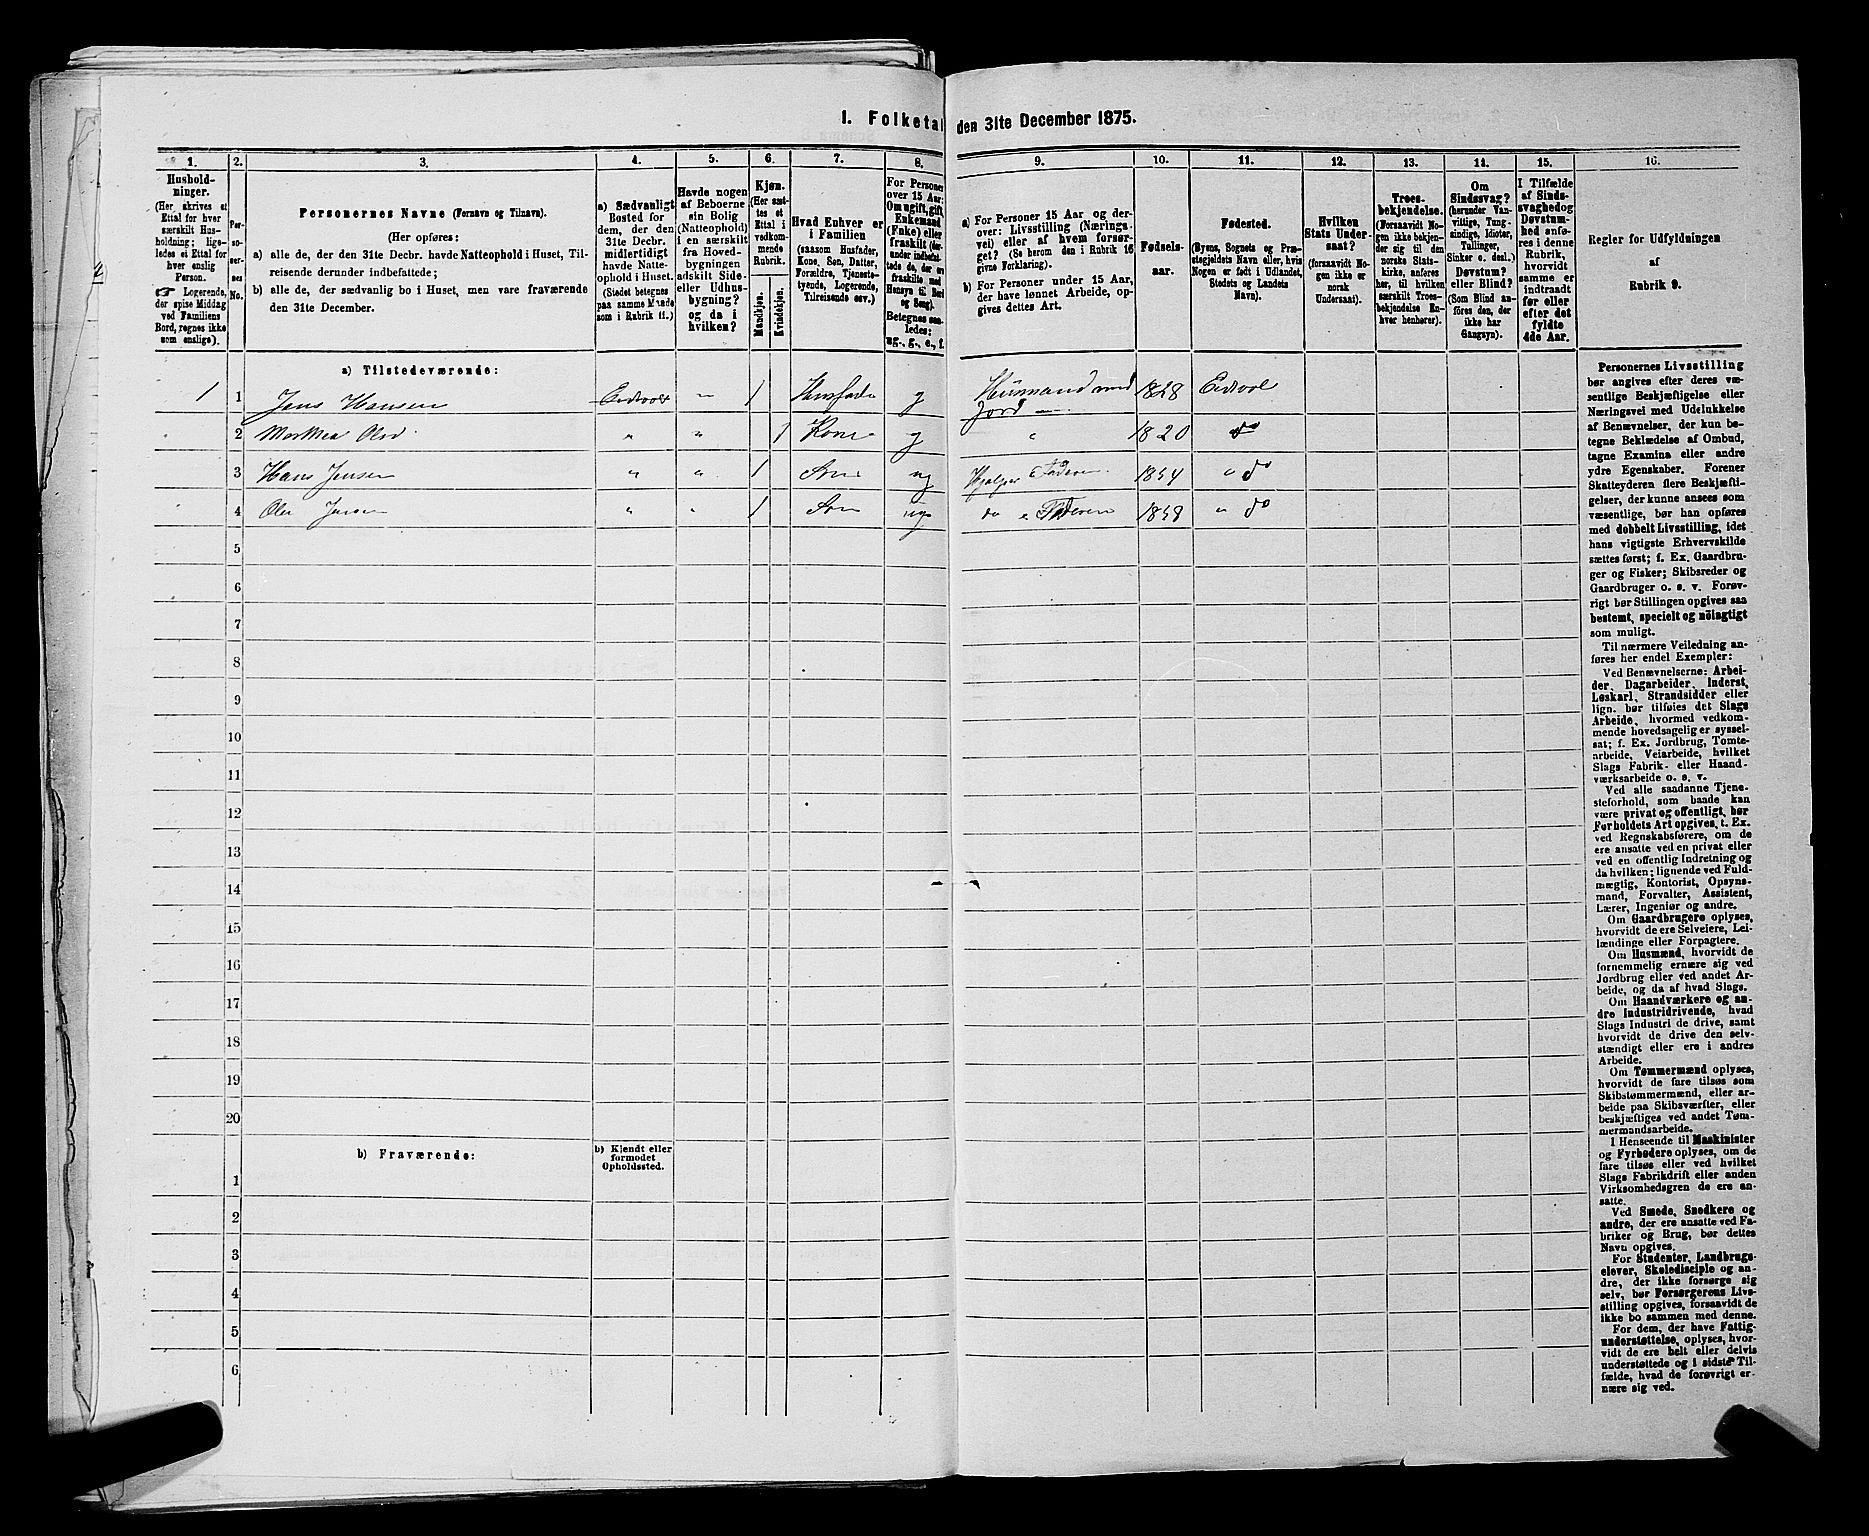 1. Folketal den 31te December 1875.
1. 2. 3. 4. 5. 6. 7. 8. 9. 10. 11. 12. 13. 14. 15. 16.
Husholdninger.
(Her skrives et
Ettal for hver
særskilt Husholdning;
ligeledes
ei Ettal for
hver enslig
Person.
☞ Logerende,
der spise Middag
ved Familiens
Bord, regnes ikke
som enslige).
Personernes No.
Personernes Navne (Fornavn og Tilnavn).
(Her opføres:
a) alle de, der den 31te Decbr. havde Natteophold i Huset, Tilreisende
derunder indbefattede;
b) alle de, der sædvanlig bo i Huset, men vare fraværende
den 31te December.
a) Sædvanligt
Bosted for
dem, der den
31te Decbr.
midlertidigt
havde Natteophold
i Huset.
(Stedet betegnes
paa samme Maade
som i Rubrik 11.)
Havde nogen
af Beboerne
sin Bolig
(Natteophold)
i en særskilt
fra Hovedbygningen
adskilt Side-
eller Udhusbygning?
og da i
hvilken?
Kjøn.
(Her sættes
et
Ettal i
vedkommende
Rubrik.
Mandkjøn.
Kvindekjøn.
Hvad Enhver er
i Familien
(saasom Husfader,
Kone, Søn, Datter,
Forældre, Tjenestetyende,
Logerende,
Tilreisende osv.)
For Personer
over 15 Aar:
Om ugift, gift,
Enkemand
(Enke) eller
fraskilt
Betegnes saaledes:
ug., g., e., f.
a) For Personer 15 Aar og derover:
Livsstilling (Næringsvei)
eller af hvem forsørget?
(Se herom den i Rubrik 16
givne Forklaring).
b) For Personer under 15 Aar,
der have lønnet Arbeide, opgives
dettes Art.
Fødselsaar.
Fødested.
(Byens, Sognets og Præstegjeldets
Navn eller, hvis
Nogen er født i Udlandet,
Stedets og Landets
Navn).
Hvilken
Stats Undersaat?
(forsaavidt Nogen
ikke er
norsk
Undersaat).
Troesbekjendelse.
(Forsaavidt Nogen
ikke bekjender
sig til den
norske Statskirke,
anføres
her, til hvilken
særskilt Troesbekjendelse
Enhver
henhører).
Om
Sindssvag?
(herunder Vanvittige,
Tungsindige,
Idioter,
Tullinger,
Sinker o. desl.)
Døvstum?
eller Blind?
(Som Blind anføres
den, der
ikke har
Gangsyn).
I Tilfælde
af Sindssvaghed
og
Døvstumhed
anføres
i denne
Rubrik,
hvorvidt
samme er
indtraadt
før eller
efter det
fyldte
4de Aar.
Regler for Udfyldningen
af
Rubrik 9.
a) Tilstedeværende:
1 1 Jens Hansen Eidsvol " 1 Husfader g Husmand med Jord 1828 Eidsvol
2 " " 1 Kone g " 1820 do
3 Hans Jensen " " 1 Søn ug Hjelper Faderen 1854 " do
4 Ole Jensen " " 1 Søn ug do " Faderen 1858 " do
5
6
7
8
9
10
11
12
13
14
15
16
17
18
19
20
b) Fraværende:
b) Kjendt eller
formodet
Opholdssted.
1
2
3
4
5
6
Personernes Livsstilling
bør angives efter deres væsentlige
Beskjæftigelse eller
Næringsvei med Udelukkelse
af Benævnelser, der kun betegne
Beklædelse af Ombud,
tagne Examina eller andre
ydre Egenskaber. Forener
Skatteyderen flere Beskjæftigelser,
der kunne ansees som
væsentlige, bør han opføres
med dobbelt Livsstilling, idet
hans vigtigste Erhvervskilde
sættes først; f. Ex. Gaardbruger
og Fisker; Skibsreder og
Gaardbruger o. s. v. Forøvrigt
bør Stillingen opgives saa
bestemt, specielt og nöiagtigt
som muligt.
Til nærmere Veiledning anføres
her endel Exempler:
Ved Benævnelserne: Arbeider,
Dagarbeider, Inderst,
Løskarl, Strandsidder eller
lign. bør tilføies det Slags
Arbeide, hvormed vedkommende
hovedsagelig er sysselsat;
f. Ex. Jordbrug, Tomtearbeide,
Veiarbeide, hvilket
Slags Fabrik- eller Haandværksarbeide
o. s. v.
Ved alle saadanne Tjenesteforhold,
som baade kan
være privat og offentligt, bør
Forholdets Art opgives, t. Ex.
ved Regnskabsførere, om de
ere ansatte ved en privat eller
ved en offentlig Indretning og
da hvilken; lignende ved Fuldmægtig,
Kontorist, Opsynsmand,
Forvalter, Assistent,
Lærer, Ingeniør og andre.
Om Gaardbrugere oplyses,
hvorvidt de ere Selveiere, Leilændinge
eller Forpagtere.
Om Husmænd, hvorvidt de
fornemmelig ernære sig ved
Jordbrug eller ved andet Arbeide,
og da af hvad Slags.
Om Haandværkere og andre
Industridrivende, hvad
Slags Industri de drive, samt
hvorvidt de drive den selvstændigt
eller ere i andres
Arbeide.
Om Tømmermænd oplyses,
hvorvidt de fare tilsøs som
Skibstømmermænd, eller arbeide
paa Skibsværfter, eller
beskjæftiges ved andet Tømmermandsarbeide.
I Henseende til Maskinister
og Fyrbødere oplyses, om de
fare tilsøs eller ved hvilket
Slags Fabrikdrift eller anden
Virksomhedsgren de ere ansatte.
Ved Smede, Snedkere og
andre, der ere ansatte ved Fabriker
og Brug, bør dettes
Navn opgives.
For Studenter, Landbrugselever,
Skoledisciple og andre,
der ikke forsørge sig
selv, bør Forsørgerens Livsstilling
opgives, forsaavidt de
ikke bo sammen med denne.
For dem, der have Fattigunderstøttelse,
oplyses, hvorvidt
de ere helt eller delvis
understøttede og i sidste Tilfælde,
hvad de forøvrigt ernære
sig ved.